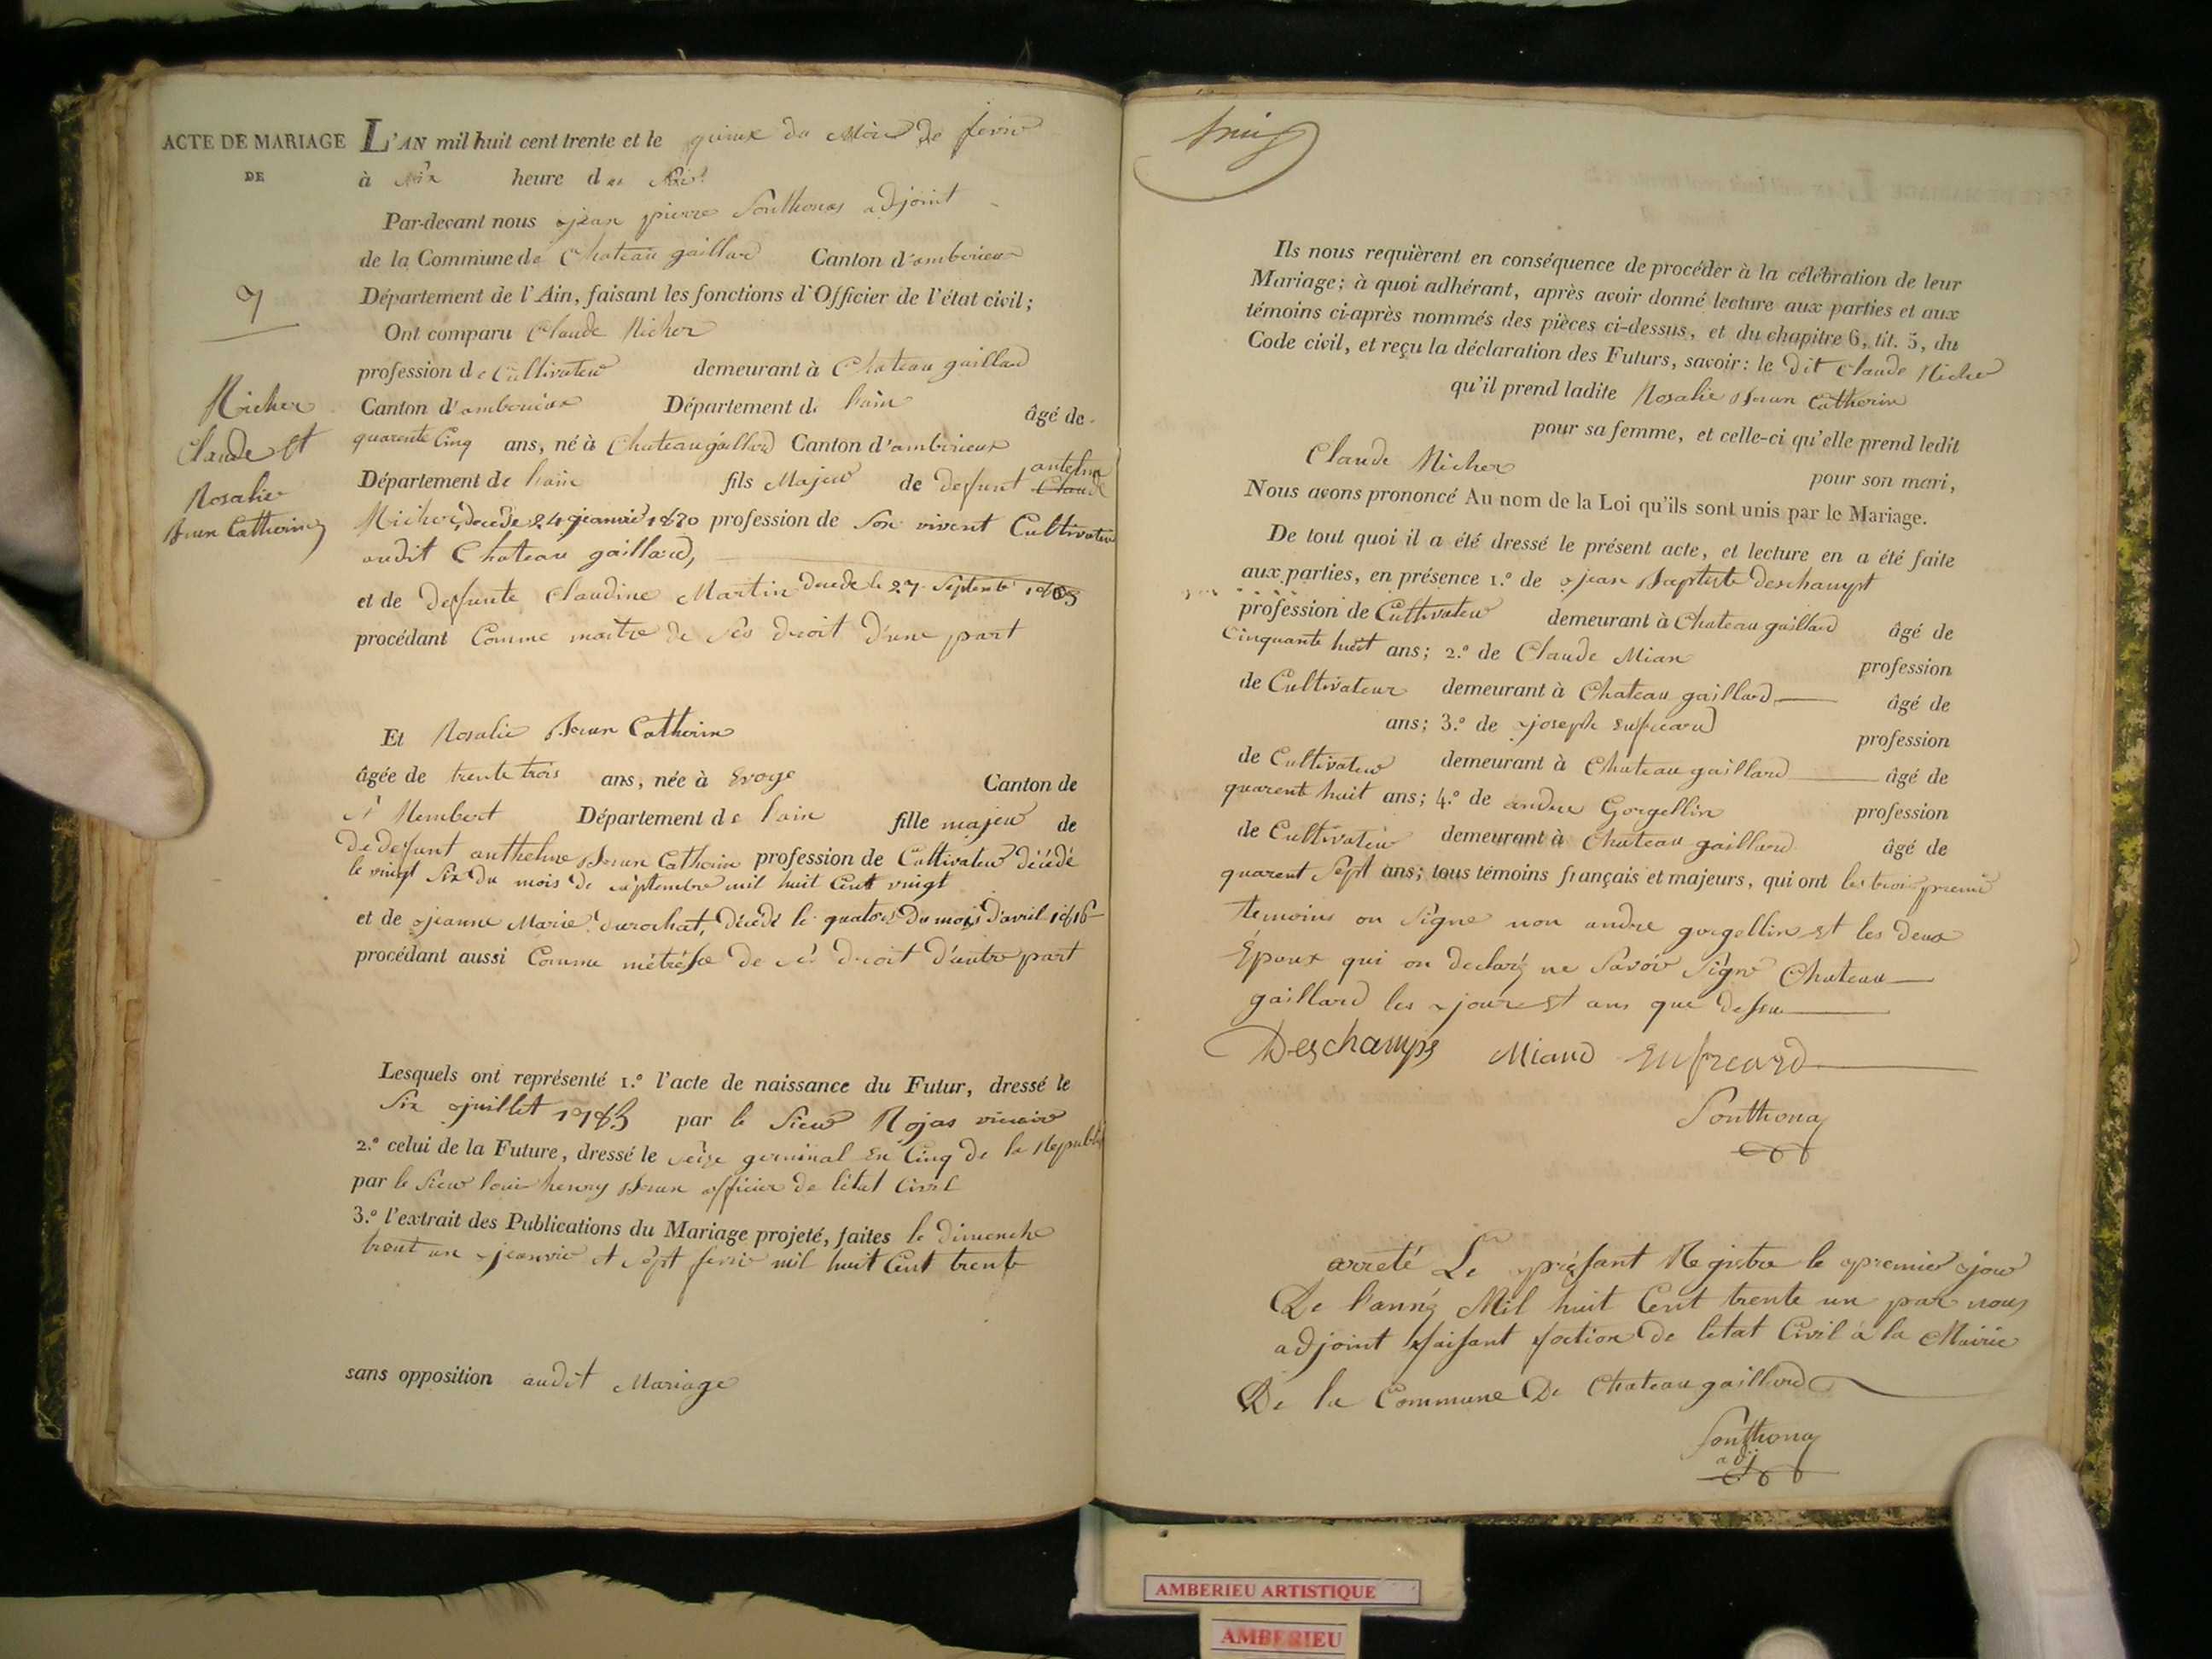 ACTE DE MARIAGE
DE
7
Richer
Claude et
Rosalie
Brun Catherin
L'AN mil huit cent trente et le quinze du Mois de fevrie
à six heure du Soir
Par-devant nous jean pierre Sonthonas adjoint
de la Commune de Chateau gaillard Canton d'amberieux
Département de l'Ain, faisant les fonctions d'Officier de l'état civil;
Ont comparu Claude Richer
profession de Cultivateur demeurant à Chateau gaillard
Canton d'amberieux Département de l'ain âgé de
quarente Cinq ans, né à Chateaugaillard Canton d'amberieux
Département de l'ain fils Majeur de defunt Claude antelme
Richer, decede 24 jeanvie 1820 profession de Son vivent Cultivateur
audit Chateau gaillard,
et de defunte Claudine Martin decede le 27 Septembre
procédant Comme maitre de ses droit d'une part
Et Rosalie Brun Catherin
âgée de trente trois ans, née à Evoge Canton de
St Rembert Département de l'ain fille majeur de
de defunt anthelme Brun Catherin profession de Cultivateur décédé
le vingt Six du mois de septembre mil huit Cent vingt
et de jeanne Marie durochat, décédé le quatorse du mois d'avril 1816
procédant aussi Comme métrésse de sès droit d'autre part
Lesquels ont représenté 1.º l'acte de naissance du Futur, dressé le
Six juillet par le Sieur Rojas vicaire
2.º celui de la Future, dressé le seize germinal En Cinq de la Republi
par le Sieur loui henry Brun officier de l'état Civil
3.º l'extrait des Publications du Mariage projeté, faites le dimenche
trent un jeanvie et sept fevrie mil huit Cent trente
sans opposition audit Mariage
Ils nous requièrent en conséquence de procéder à la célébration de leur
Mariage; à quoi adhérant, après avoir donné lecture aux parties et aux
témoins ci-après nommés des pièces ci-dessus, et du chapitre 6, tit. 5, du
Code civil, et reçu la déclaration des Futurs, savoir: le dit Claude Richer
qu'il prend ladite Rosalie Brun Catherin
pour sa femme, et celle-ci qu'elle prend ledit
Claude Richer pour son mari,
Nous avons prononcé Au nom de la Loi qu'ils sont unis par le Mariage.
De tout quoi il a été dressé le présent acte, et lecture en a été faite
aux parties, en présence 1.º de jean Baptiste deschampt
profession de Cultivateur demeurant à Chateau gaillard âgé de
Cinquante huit ans; 2.º de Claude Mian profession
de Cultivateur demeurant à Chateau gaillard âgé de
ans; 3.º de joseph Enfreard profession
de Cultivateur demeurant à Chateau gaillard âgé de
quarent huit ans; 4.º de andre Gorgellin profession
de Cultivateur demeurant à Chateau gaillard âgé de
quarent Sept ans; tous témoins français et majeurs, qui ont les trois premie
temoins on Signe non andre gorgellin et les deux
Époux qui on declaré ne Savoir Signé Chateau
gaillard les jour et ans que dessu
Deschamps Miand Enfreard
Sonthonas
arreté Le présant Registre le premier jour
De l'anné Mil huit Cent trente un par nous
adjoint faisant foction de letat Civil à la Mairie
De la Commune De Chateau gaillard
Sonthonas
adj
AMBERIEU ARTISTIQUE
AMBERIEU